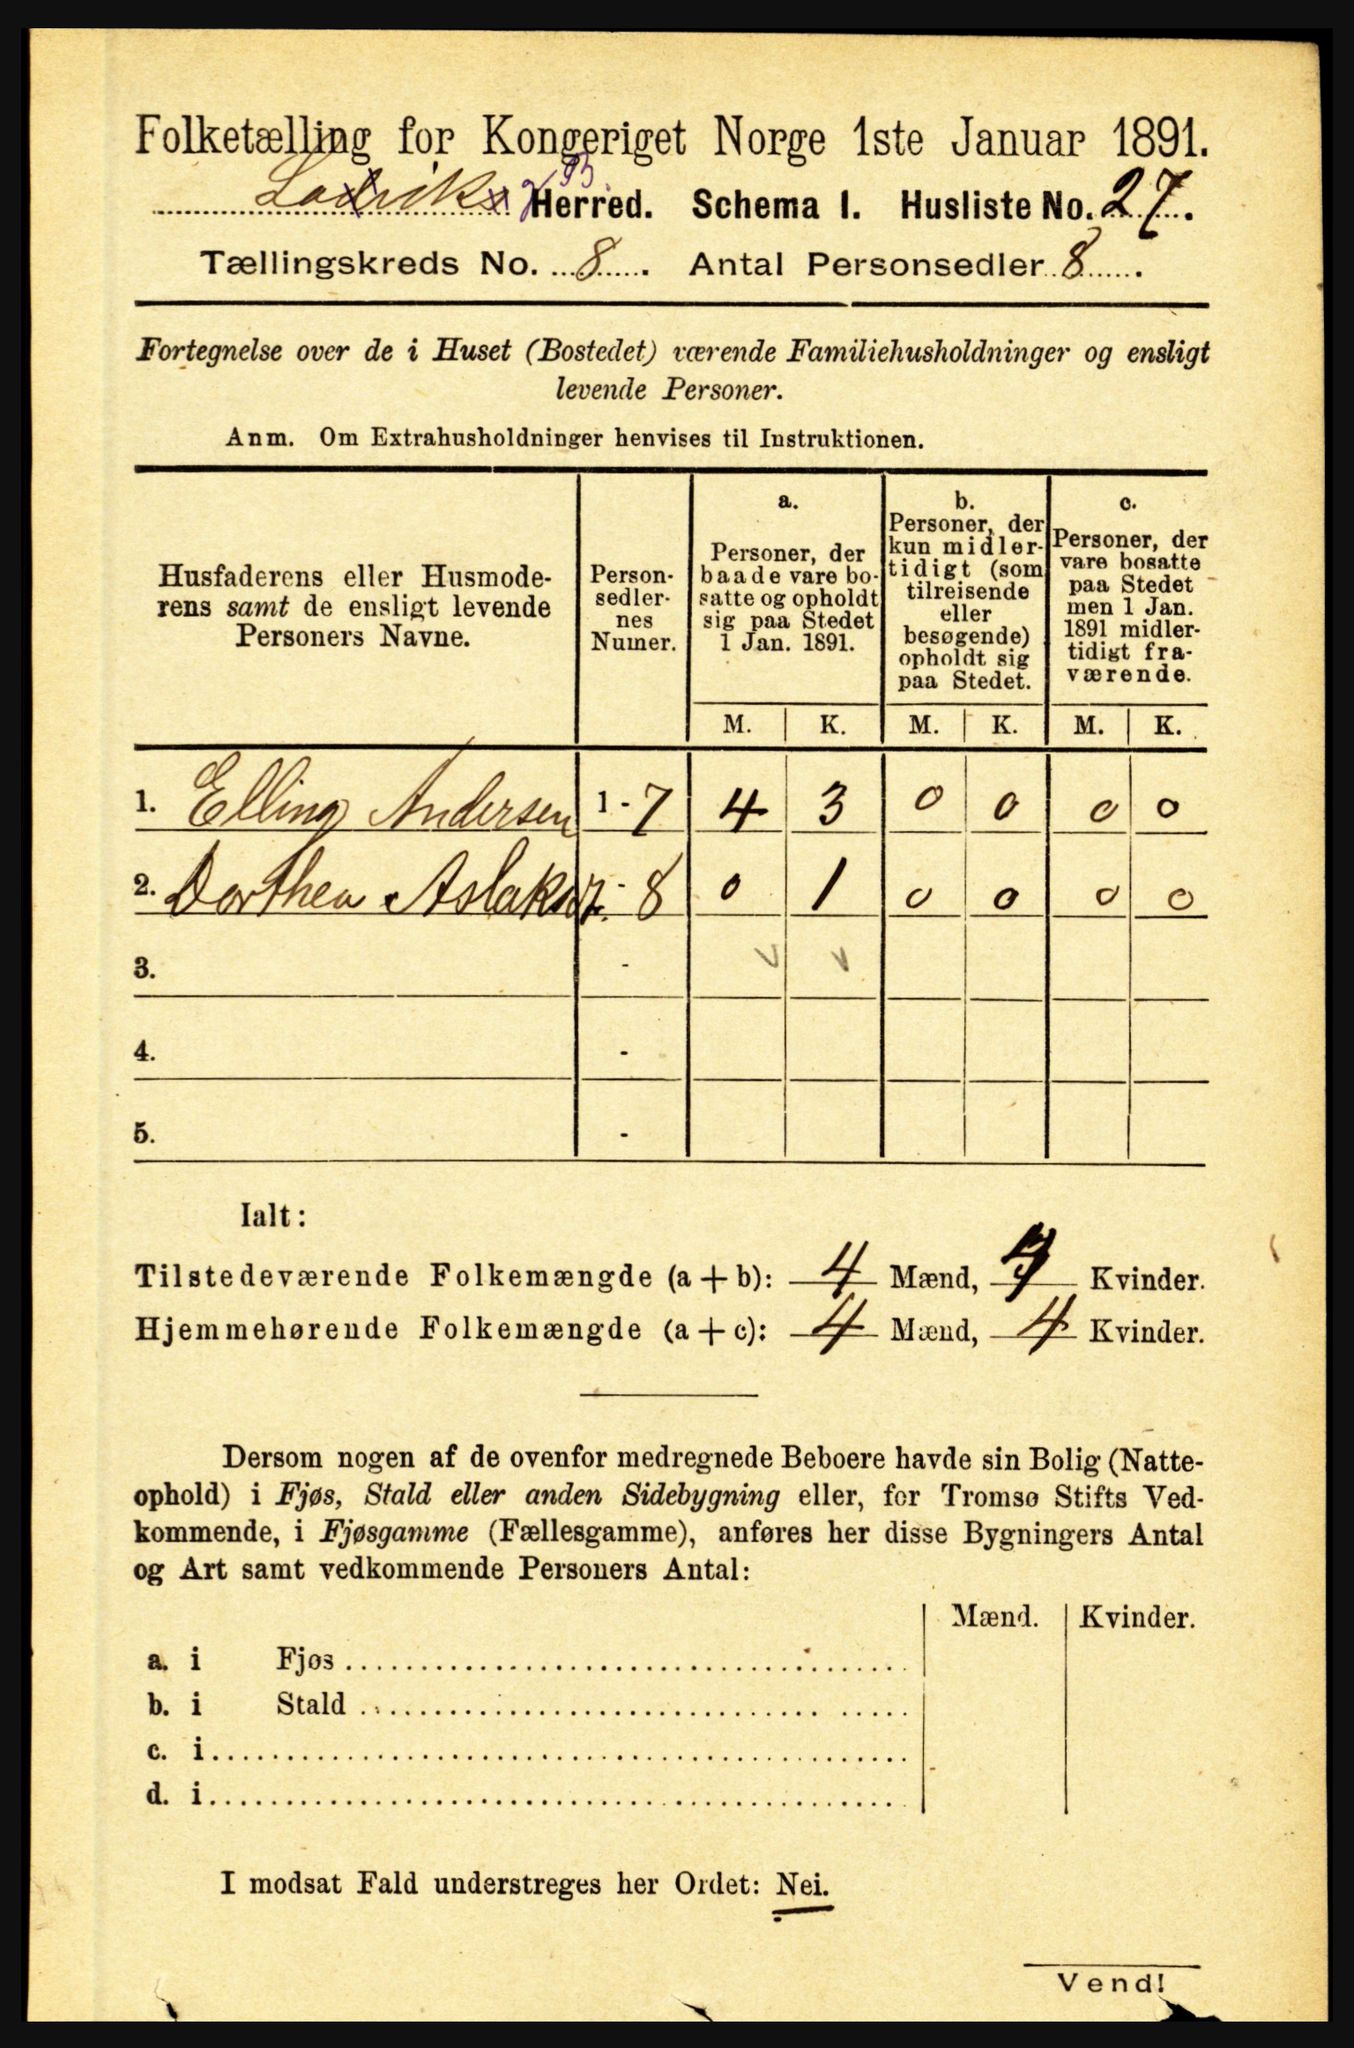 Folketælling for Kongeriget Norge 1ste Januar 1891.
Herred. Schema 1. Husliste No. 27.
Tællingskreds No. 8. Antal Personsedler 8.
Fortegnelse over de i Huset (Bostedet) værende Familiehusholdninger og ensligt
levende Personer.
Anm. Om Extrahusholdninger henvises til Instruktionen.
Husfaderens eller Husmode-
rens samt de ensligt levende
Personers Navne.
Person-
sedler-
nes
Numer.
a.
Personer, der
baade vare bo-
satte og opholdt
sig paa Stedet
1 Jan. 1891.
b.
Personer, der
kun midler-
tidigt (som
tilreisende
eller
besøgende)
opholdt sig
paa Stedet.
c.
Personer, der
vare bosatte
paa Stedet
men 1 Jan.
1891 midler-
tidigt fra-
værende.
M. K. M. K. M. K.
1. Elling Andersen 1 - 7 4 3 0 0 0 0
2. Dorthea - 8 0 1 0 0 0 0
3. -
4. -
5. -
Ialt:
Tilstedeværende Folkemængde (a + b): 4 Mænd, Kvinder.
Hjemmehørende Folkemængde (a + c): 4 Mænd, 4 Kvinder.
Dersom nogen af de ovenfor medregnede Beboere havde sin Bolig (Natte-
ophold) i Fjøs, Stald eller anden Sidebygning eller, for Tromsø Stifts Ved-
kommende, i Fjøsgamme (Fællesgamme), anføres her disse Bygningers Antal
og Art samt vedkommende Personers Antal:
Mænd. Kvinder.
a. i Fjøs
b. i Stald
c. i
d. i
I modsat Fald understreges her Ordet: Nei.
Vend!